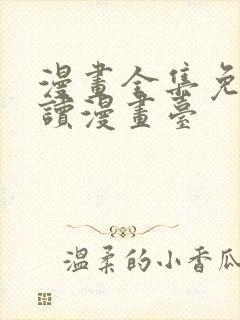 漫畫全集免
讀漫畫臺
温柔的小香瓜